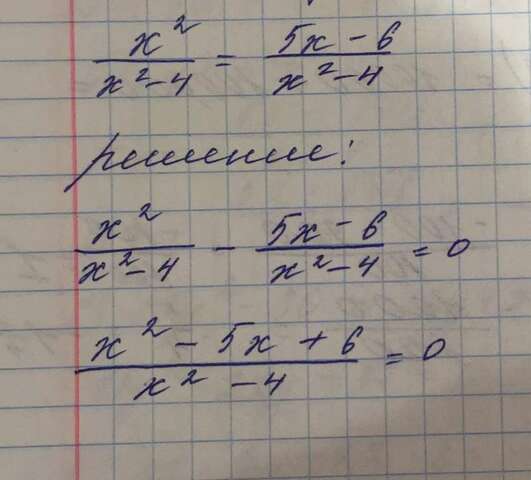 x²/(x²-4) = (5x-6)/(x²-4)
решение:
x²/(x²-4) - (5x-6)/(x²-4) = 0
(x²-5x+6)/(x²-4) = 0